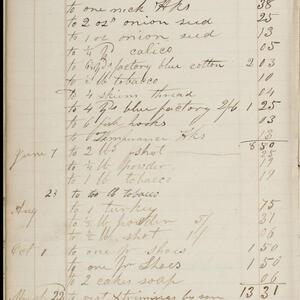 to one neck Hks 38
to 2 ozs onion seed 25
to 1 oz onion seed 13
to ¼ yd calico 05
to 6 yds factory blue cotton 2 03
to ½ lb tobacco 10
to 4 skiens thread 04
to 4 yds blue factory 2/6 1 25
to 6 fish hooks 03
to Hks 13
8 50
June 7 to 2 lbs shot 25
to ½ lb powder 19
to ¼ lb tobacco 19
23 to lb tobacco
Aug to 1 turkey 75
to ½ lb powder 5/ 31
to ½ lb shot 1/ 06
Oct 1 to one pr shoes 1 50
to one pr Shoes 1 50
to 2 cakes soap 06
March 22 13 31
to by son